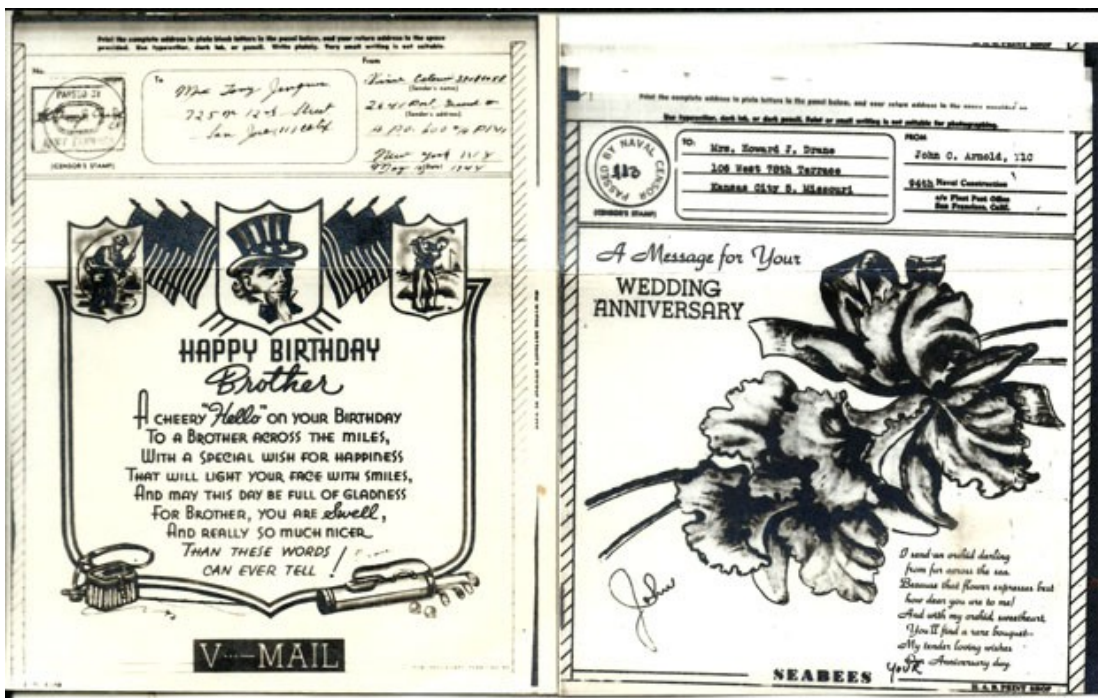 Print the complete address in plain block letters in the panel below, and your return address in the space
provided. Use typewriter, dark ink, or pencil. Write plainly. Very small writing is not suitable.
No.
To
From
PASSED BY
(CENSOR'S STAMP)
Mrs Tony
725 N 12th Street
San Jose, 11 Calif
(Sender's name)
(Sender's address)
New York N.Y.
1944
HAPPY BIRTHDAY
Brother
A CHEERY "Hello" ON YOUR BIRTHDAY
TO A BROTHER ACROSS THE MILES,
WITH A SPECIAL WISH FOR HAPPINESS
THAT WILL LIGHT YOUR FACE WITH SMILES,
AND MAY THIS DAY BE FULL OF GLADNESS
FOR BROTHER, YOU ARE Swell,
AND REALLY SO MUCH NICER
THAN THESE WORDS
CAN EVER TELL!
V···—MAIL
Print the complete address in plain letters in the panel below, and your return address in the space provided on
Use typewriter, dark ink, or dark pencil. Faint or small writing is not suitable for photographing.
PASSED BY NAVAL CENSOR
(CENSOR'S STAMP)
TO:
Mrs. Howard J. Drane
106 West 78th Terrace
Kansas City 5, Missouri
FROM
John C. Arnold, Y1C
94th Naval Construction
c/o Fleet Post Office
San Francisco, Calif.
A Message for Your
WEDDING
ANNIVERSARY
I send an orchid darling
from far across the sea
Because that flower expresses best
how dear you are to me!
And with my orchid, sweetheart,
You'll find a rare bouquet—
My tender loving wishes
YOUR Anniversary day.
John
SEABEES
H.A.B. PRINT SHOP